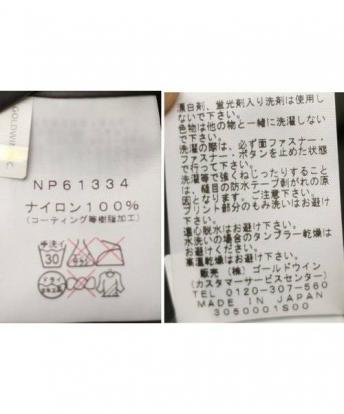 GOLDWIN
NP61334
ナイロン100%
(コーティング等樹脂加工)
手洗イ
30
エンソ
サラシ
ドライ
セキユ系
漂白剤、蛍光剤入り洗剤は使用し
ないで下さい。
色物は他の物と一緒に洗濯しない
で下さい。
洗濯の際は、必ず面ファスナー・
ファスナー・ボタンを止めた状態
で行って下さい。
洗濯等で強くねじったりすること
は、縫目の防水テープ剥がれの原
因となります。ご注意下さい。
プリント部分のもみ洗いはお避け
下さい。
遠心脱水はお避け下さい。
水洗いの場合のタンブラー乾燥は
お避け下さい。
高温乾燥はお避け下さい。
販売 (株)ゴールドウイン
(カスタマーサービスセンター)
TEL 0120-307-560
MADE IN JAPAN
3050001S00